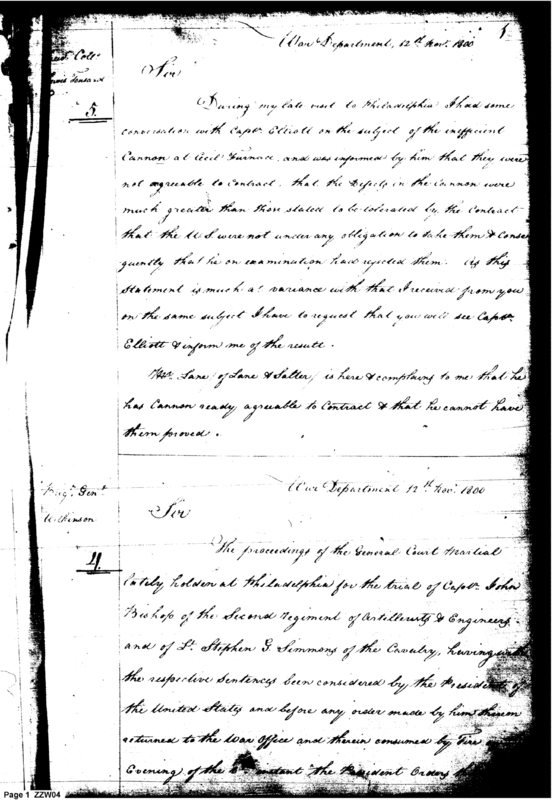 War Department, 12th Novr. 1800
Colo.
Sir
5.
During my late visit to Philadelphia I had some
conversation with Captn. Elliott on the subject of the inefficient
Cannon at Cecil Furnace, and was informed by him that they were
not agreeable to Contract, that the Defects in the Cannon were
much greater than those stated to be tolerated by the Contract
that the U S were not under any obligation to take them & Conse
quently that he on examination had rejected them. As this
Statement is much at variance with that I received from you
on the same subject I have to request that you will see Captn.
Elliott & inform me of the result.
Mr. Lane (of Lane & Salter) is here & complains to me that he
has Cannon ready agreable to Contract & that he cannot have
them proved.
Majr. Genl.
Wilkinson
War Department 12th Novr. 1800
Sir
4.
The proceedings of the General Court Martial
lately holden at Philadelphia for the trial of Captn. John
Bishop of the Second Regiment of Artillerists & Engineers
and of Lt. Stephen G. Simmons of the Cavalry, having with
the respective Sentences been considered by the President of
the United States and before any order made by him therein
returned to the War Office and therein consumed by Fire
Evening of the instant the President Orders
Page 1 ZZW04